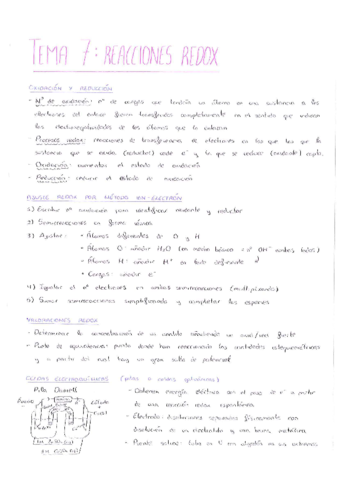 TEMA 7: REACCIONES REDOX
OXIDACIÓN Y REDUCCIÓN
- Nº de oxidación: nº de cargas que tendría un átomo en una sustancia si los
electrones del enlace fueran transferidos completamente en el sentido que indican
las electronegatividades de los átomos que lo
- Procesos redox: reacciones de transferencia de electrones en las que hay que la
sustancia que se oxida (reductor) cede e⁻ y la que se reduce (oxidante) capta.
- Oxidación: aumentar el estado de oxidación
- Reducción: reducir el estado de oxidación
AJUSTE REDOX POR MÉTODO IÓN-ELECTRÓN
1) Escribir nº oxidación para identificar oxidante y reductor
2) Semirreacciones en forma iónica
3) Ajustar: - Átomos diferentes de O y H
- Átomos O: añadir H₂O (en medio básico = nº OH⁻ ambos lados)
- Átomos H: añadir H⁺ en lado
- Cargas: añadir e⁻
4) Igualar el nº electrones en ambas semirreacciones (multiplicando)
5) Sumar semirreacciones simplificando y completar las especies
VALORACIONES REDOX
- Determinar la concentración de un
- Punto de equivalencia: punto donde han reaccionado las cantidades estequiométricas
y a partir del cual hay un gran salto de potencial
CELDAS ELECTROQUÍMICAS (pilas o celdas galvánicas)
Pila Daniell
- Obtienen energía eléctrica con el paso de e⁻ a partir
de una reacción redox espontánea
- Electrodo: disoluciones separadas físicamente con
disolución de un electrolito y una barra metálica
- Puente salino: tubo en U con algodón en los extremos